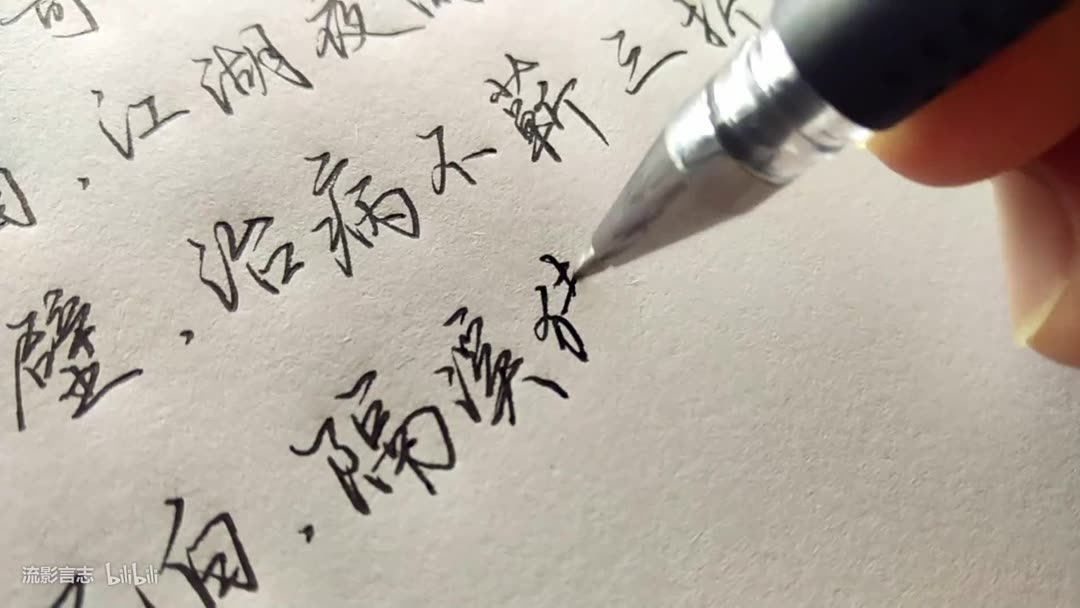 江湖夜
壁，治病不蕲三折
向，隔溪
流影言志 bilibili